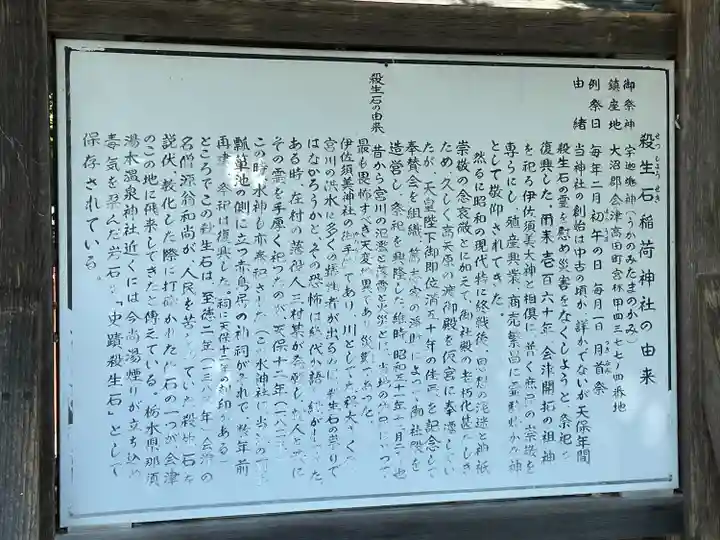 殺生石稲荷神社の由来
せっしょうせき
御祭神 宇迦御神(うかのみたまのかみ)
鎮座地 大沼郡会津高田町宮林甲四三七七ノ四番地
例祭日 毎年二月初午の日 毎月一日 月首祭
由緒 当神社の創始は中古の頃か、詳かでないが天保年間
殺生石の霊を慰め災害をなくしようと、祭祀を
復興した。爾来壱百六十年、会津開拓の祖神
を祀る伊佐須美大神と相倶に普く庶民の崇敬を
専らにし、殖産興業、商売繁昌に霊験
として敬仰されてきた。
然るに昭和の現代特に終戦後、思想の混迷と神祇
崇敬の念衰微とに加えて、御社殿の老朽化甚だしき
ため、久しく高天原の渡御殿を仮宮に奉遷してい
たが、天皇陛下御即位満五十年の佳典を記念して
奉賛会を組織、によって御社殿を
造営し、祭祀を興隆した。維時昭和五十一年
殺生石の由来
昔から宮川の氾濫と
最も畏怖すべき天変地異であり災禍であった。
伊佐須美神社の川として
宮川の洪水に多くの犠牲者が出るのは殺生石の祟りで
はなかろうかと、その恐怖は絶代
ある時、左村の
その霊を手厚く祀ったのが天保十二年(一八
この時、水神も亦奉祀された(この水神社に当
瓢箪池の側に立つ赤鳥居の祠がそれで、数年前
再建、祭祀は復興した。祠に天保十二年の刻印がある)
ところでこの殺生石は、至徳二年(一三 年)会津の
名僧源翁和尚が人民を苦しめていた殺生石を
説伏、教化した際に打砕かれた石の一つが会津
のこの地に飛来してきたと伝えている。栃木県那須
湯本温泉神社近くには今尚湯煙りが立ち込め
毒気を孕んだ岩石を「史蹟殺生石」として
保存されている。